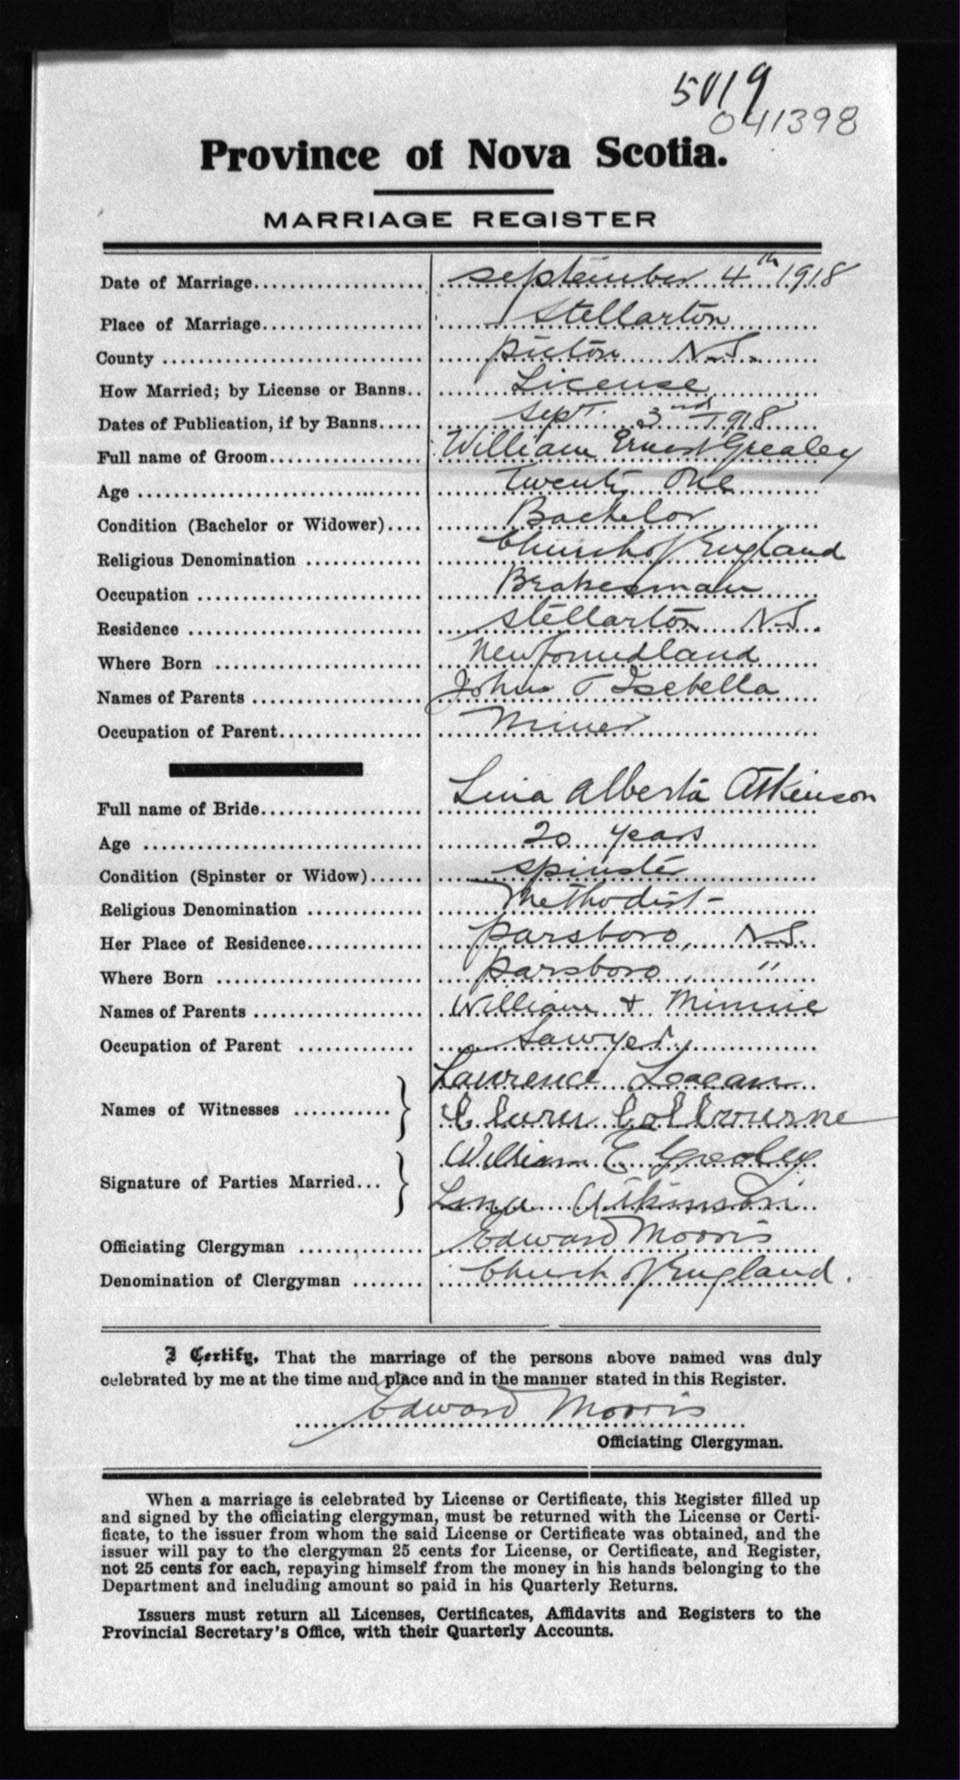 5019
041398
Province of Nova Scotia.
MARRIAGE REGISTER
Date of Marriage September 4th 1918
Place of Marriage Stellarton
County Pictou N.S.
How Married; by License or Banns License
Dates of Publication, if by Banns Sept. 3rd 1918
Full name of Groom William Ernest Grealey
Age Twenty One
Condition (Bachelor or Widower) Bachelor
Religious Denomination Church of England
Occupation Brakesman
Residence Stellarton N.S.
Where Born Newfoundland
Names of Parents John & Isebella
Occupation of Parent Miner
Full name of Bride Lina Alberta Atkinson
Age 20 years
Condition (Spinster or Widow) Spinster
Religious Denomination Methodist
Her Place of Residence Parsboro, N.S.
Where Born Parsboro, "
Names of Parents William & Minnie
Occupation of Parent Sawyer
Lawrence
Names of Witnesses Colbourne
William E Grealey
Signature of Parties Married
Lina Atkinson
Officiating Clergyman Edward Morris
Denomination of Clergyman Church of England.
I Certify, That the marriage of the persons above named was duly
celebrated by me at the time and place and in the manner stated in this Register.
Edward Morris
Officiating Clergyman.
When a marriage is celebrated by License or Certificate, this Register filled up
and signed by the officiating clergyman, must be returned with the License or Certi-
ficate, to the issuer from whom the said License or Certificate was obtained, and the
issuer will pay to the clergyman 25 cents for License, or Certificate, and Register,
not 25 cents for each, repaying himself from the money in his hands belonging to the
Department and including amount so paid in his Quarterly Returns.
Issuers must return all Licenses, Certificates, Affidavits and Registers to the
Provincial Secretary's Office, with their Quarterly Accounts.